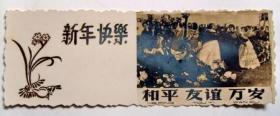 新年快樂
和平友谊万岁